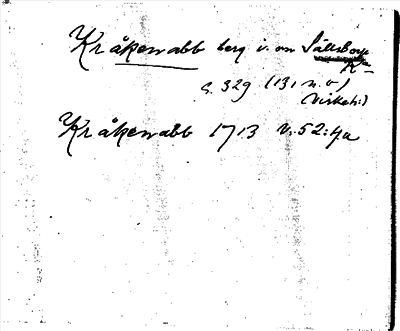 Kråkenabb berg v. om Sältsborg
K-
s. 329 (13, n. v)
(Virkesh:)
Kråkenabb 1713 v. 52:4a